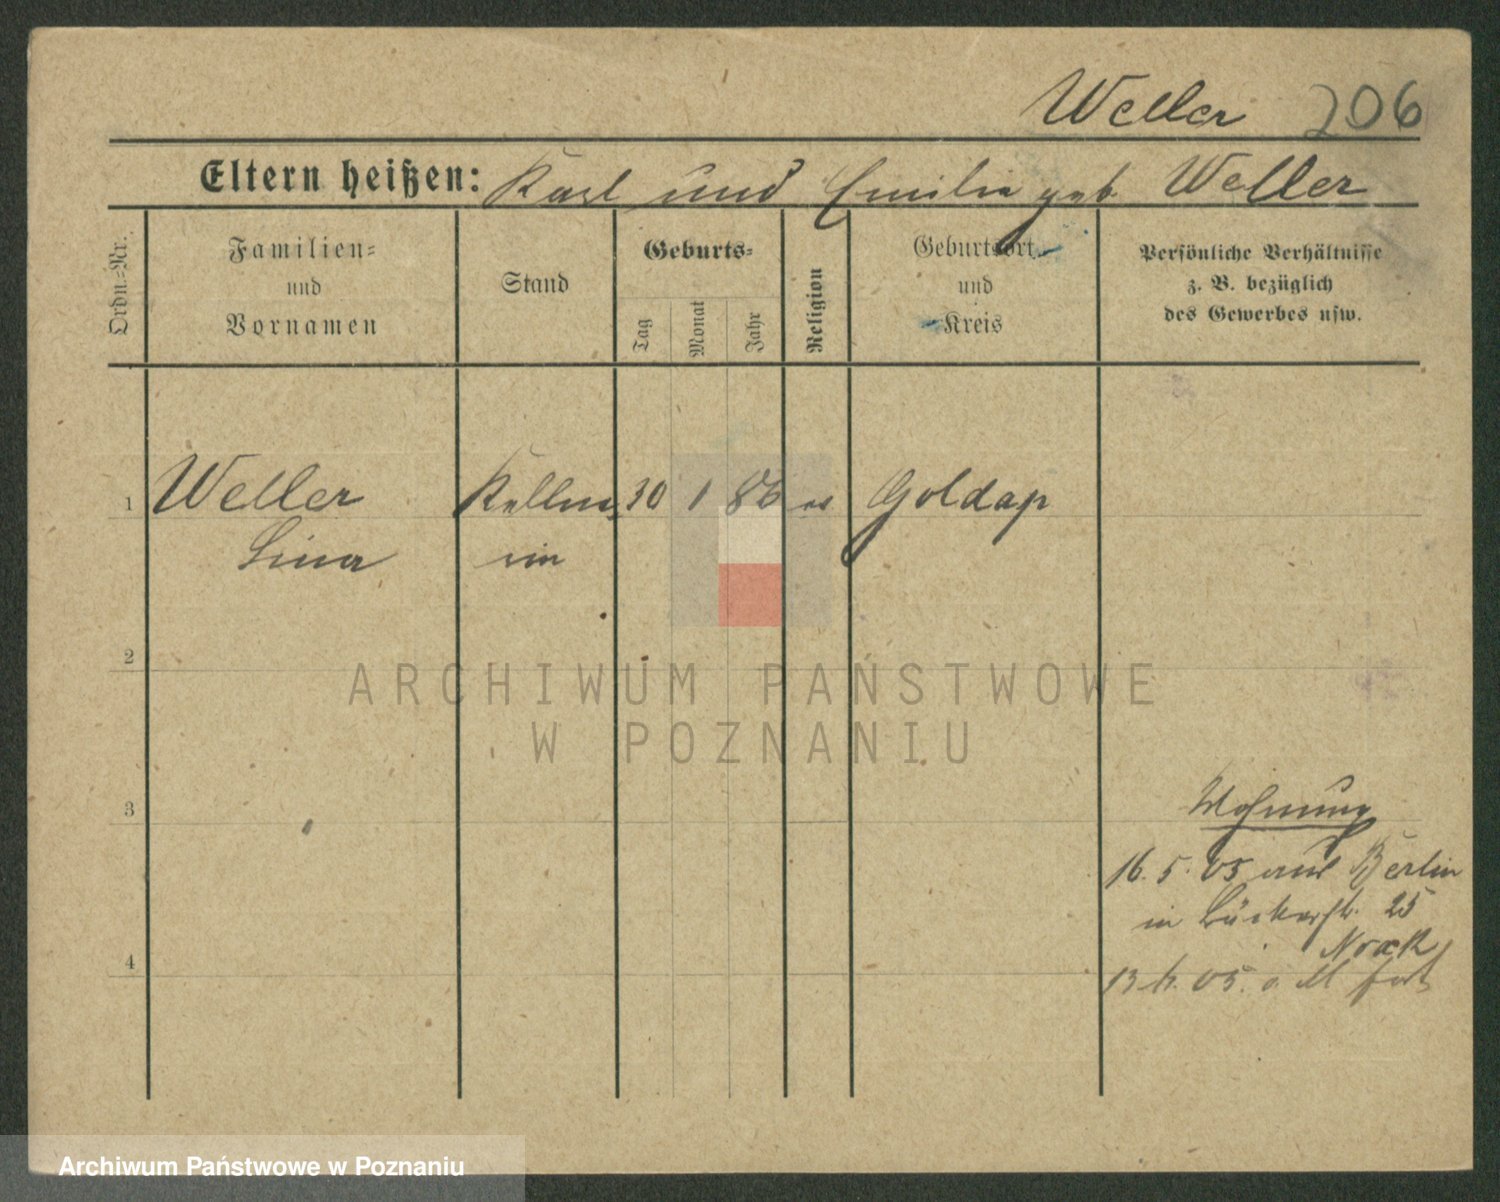 Weller 206
Eltern heißen: Karl und Emilie geb. Weller
Ordn.=Nr.
Familien=
und
Vornamen
Stand
Geburts=
Tag
Monat
Jahr
Religion
Geburtsort
und
Kreis
Persönliche Verhältnisse
z. B. bezüglich
des Gewerbes usw.
1 Weller Kelln 30 1 86 ev Goldap
Lina
2
3
4
Wohnung
16. 5. 05 aus Berlin
in 25
Noack
05. fort
ARCHIWUM PAŃSTWOWE
W POZNANIU
Archiwum Państwowe w Poznaniu